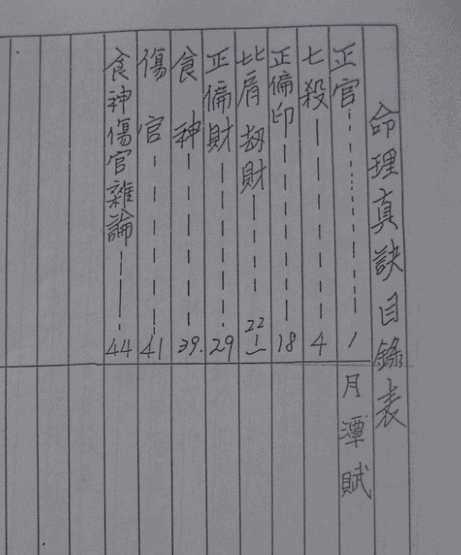 命理真訣目錄表
正官 1
七殺 4
正偏印 18
比肩劫財 22
正偏財 29
食神 39.
傷官 41
食神傷官雜論 44
月潭賦